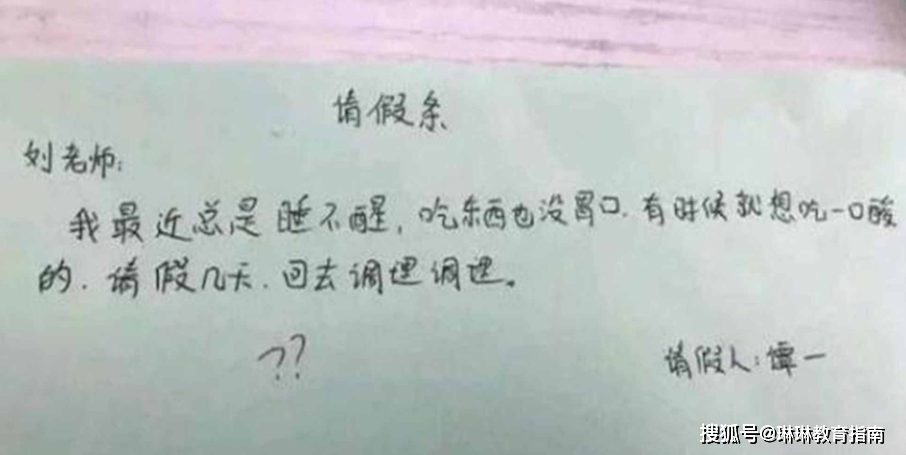 请假条
刘老师:
我最近总是睡不醒,吃东西也没胃口.有时候就想吃一口酸
的.请假几天.回去调理调理。
??
请假人:谭一
搜狐号@琳琳教育指南